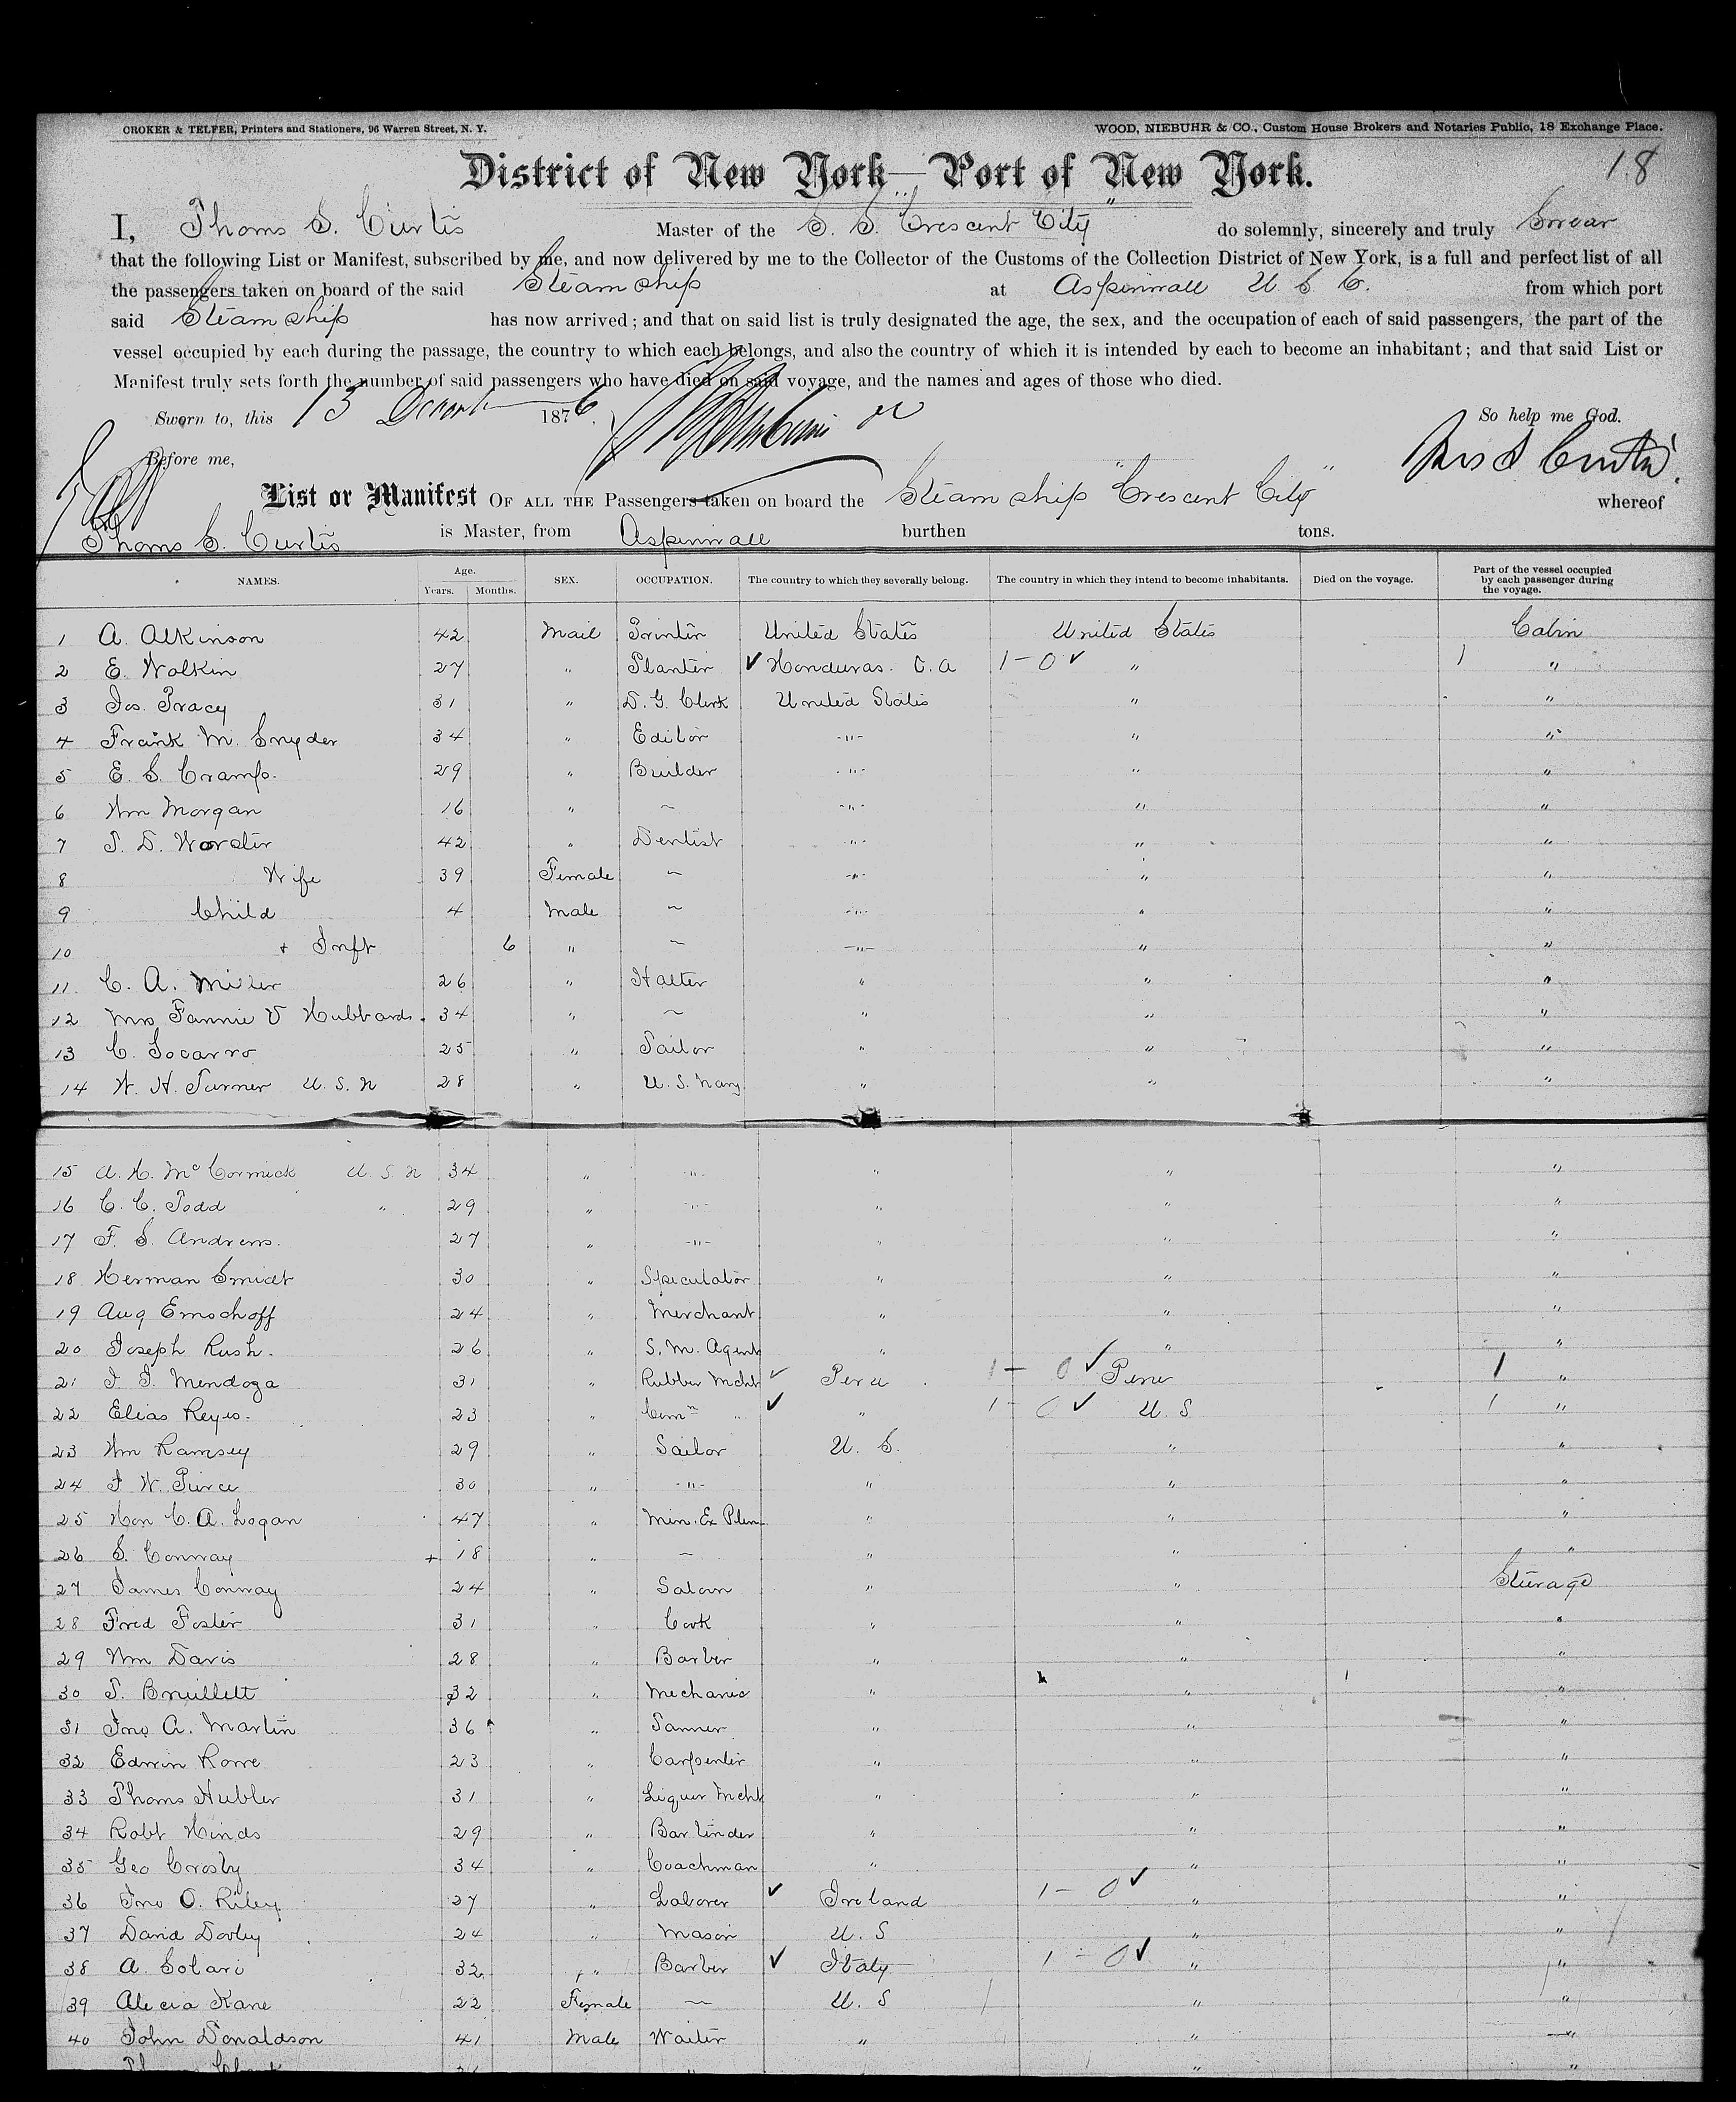 CROKER & TELFER, Printers and Stationers, 96 Warren Street, N. Y. WOOD, NIEBUHR & CO., Custom House Brokers and Notaries Public, 18 Exchange Place.
District of New York—Port of New York. 18
I, Thoms S. Curtis Master of the S. S. "Crescent City" do solemnly, sincerely and truly Swear
that the following List or Manifest, subscribed by me, and now delivered by me to the Collector of the Customs of the Collection District of New York, is a full and perfect list of all
the passengers taken on board of the said Steam ship at Aspinwall U. S. C. from which port
said Steam ship has now arrived; and that on said list is truly designated the age, the sex, and the occupation of each of said passengers, the part of the
vessel occupied by each during the passage, the country to which each belongs, and also the country of which it is intended by each to become an inhabitant; and that said List or
Manifest truly sets forth the number of said passengers who have died on said voyage, and the names and ages of those who died.
Sworn to, this 13 1876. So help me God.
Before me,
List or Manifest OF ALL THE Passengers taken on board the Steam ship "Crescent City" whereof
Thoms S. Curtis is Master, from Aspinwall burthen tons.
NAMES. Age. Years. Months. SEX. OCCUPATION. The country to which they severally belong. The country in which they intend to become inhabitants. Died on the voyage. Part of the vessel occupied by each passenger during the voyage.
1 A. Atkinson 42 Mail Printer United States United States Cabin
2 E. Wolkin 27 " Planter ✓ Honduras. C. A 1 - 0 ✓ " 1 "
3 Jos. Tracy 31 " D. G. Clerk United States " "
4 Frank M. Snyder 34 " Editor " " "
5 E. S. Cramp. 29 " Builder " " "
6 Wm Morgan 16 " ~ " " "
7 S. D. Worster 42 " Dentist " " "
8 Wife 39 Female ~ " " "
9 Child 4 Male ~ " " "
10 + Inft 6 " ~ " " "
11. C. A. Miller 26 " Hatter " " "
12 Mrs Fannie V Hubbards. 34 " ~ " " "
13 C. Socarro 25 " Tailor " " "
14 W. H. Turner U. S. N 28 " U. S. Navy " " "
15 A. H. McCormick U. S. N 34 " " " " "
16 C. C. Todd " 29 " " " " "
17 F. S. Andrews. 27 " " " " "
18 Herman Smidt 30 " Speculator " " "
19 Aug Emschoff 24 " Merchant " " "
20 Joseph Rush. 26 " S. M. Agent " " "
21 J. J. Mendoza 31 " Rubber Mcht ✓ Peru 1 - 0 ✓ Peru 1 "
22 Elias Reyes. 23 " Comn " ✓ " 1 - 0 ✓ U. S 1 "
23 Wm Ramsey 29 " Sailor U. S. " "
24 J. W. Pierce 30 " " " " "
25 Hon C. A. Logan 47 " Min. Ex Plen " " "
26 S. Conway + 18 " ~ " " "
27 James Conway 24 " Saloon " " Steerage
28 Fred Foster 31 " Cook " " "
29 Wm Davis 28 " Barber " " "
30 32 " Mechanic " " "
31 Jno A. Martin 36 " Tanner " " "
32 Edwin Rowe 23 " Carpenter " " "
33 Thoms Hubler 31 " Liquor Mcht " " "
34 Robt Hinds 29 " Bar tinder " " "
35 Geo Crosby 34 " Coachman " " "
36 Jno O. Riley 27 " Laborer ✓ Ireland 1 - 0 ✓ " "
37 David Dovley 24 " Mason U. S " "
38 A. Solari 32 " Barber ✓ Italy 1 - 0 ✓ " "
39 Alecia Kane 22 Female ~ U. S " "
40 John Donaldson 41 Male Waiter " " "